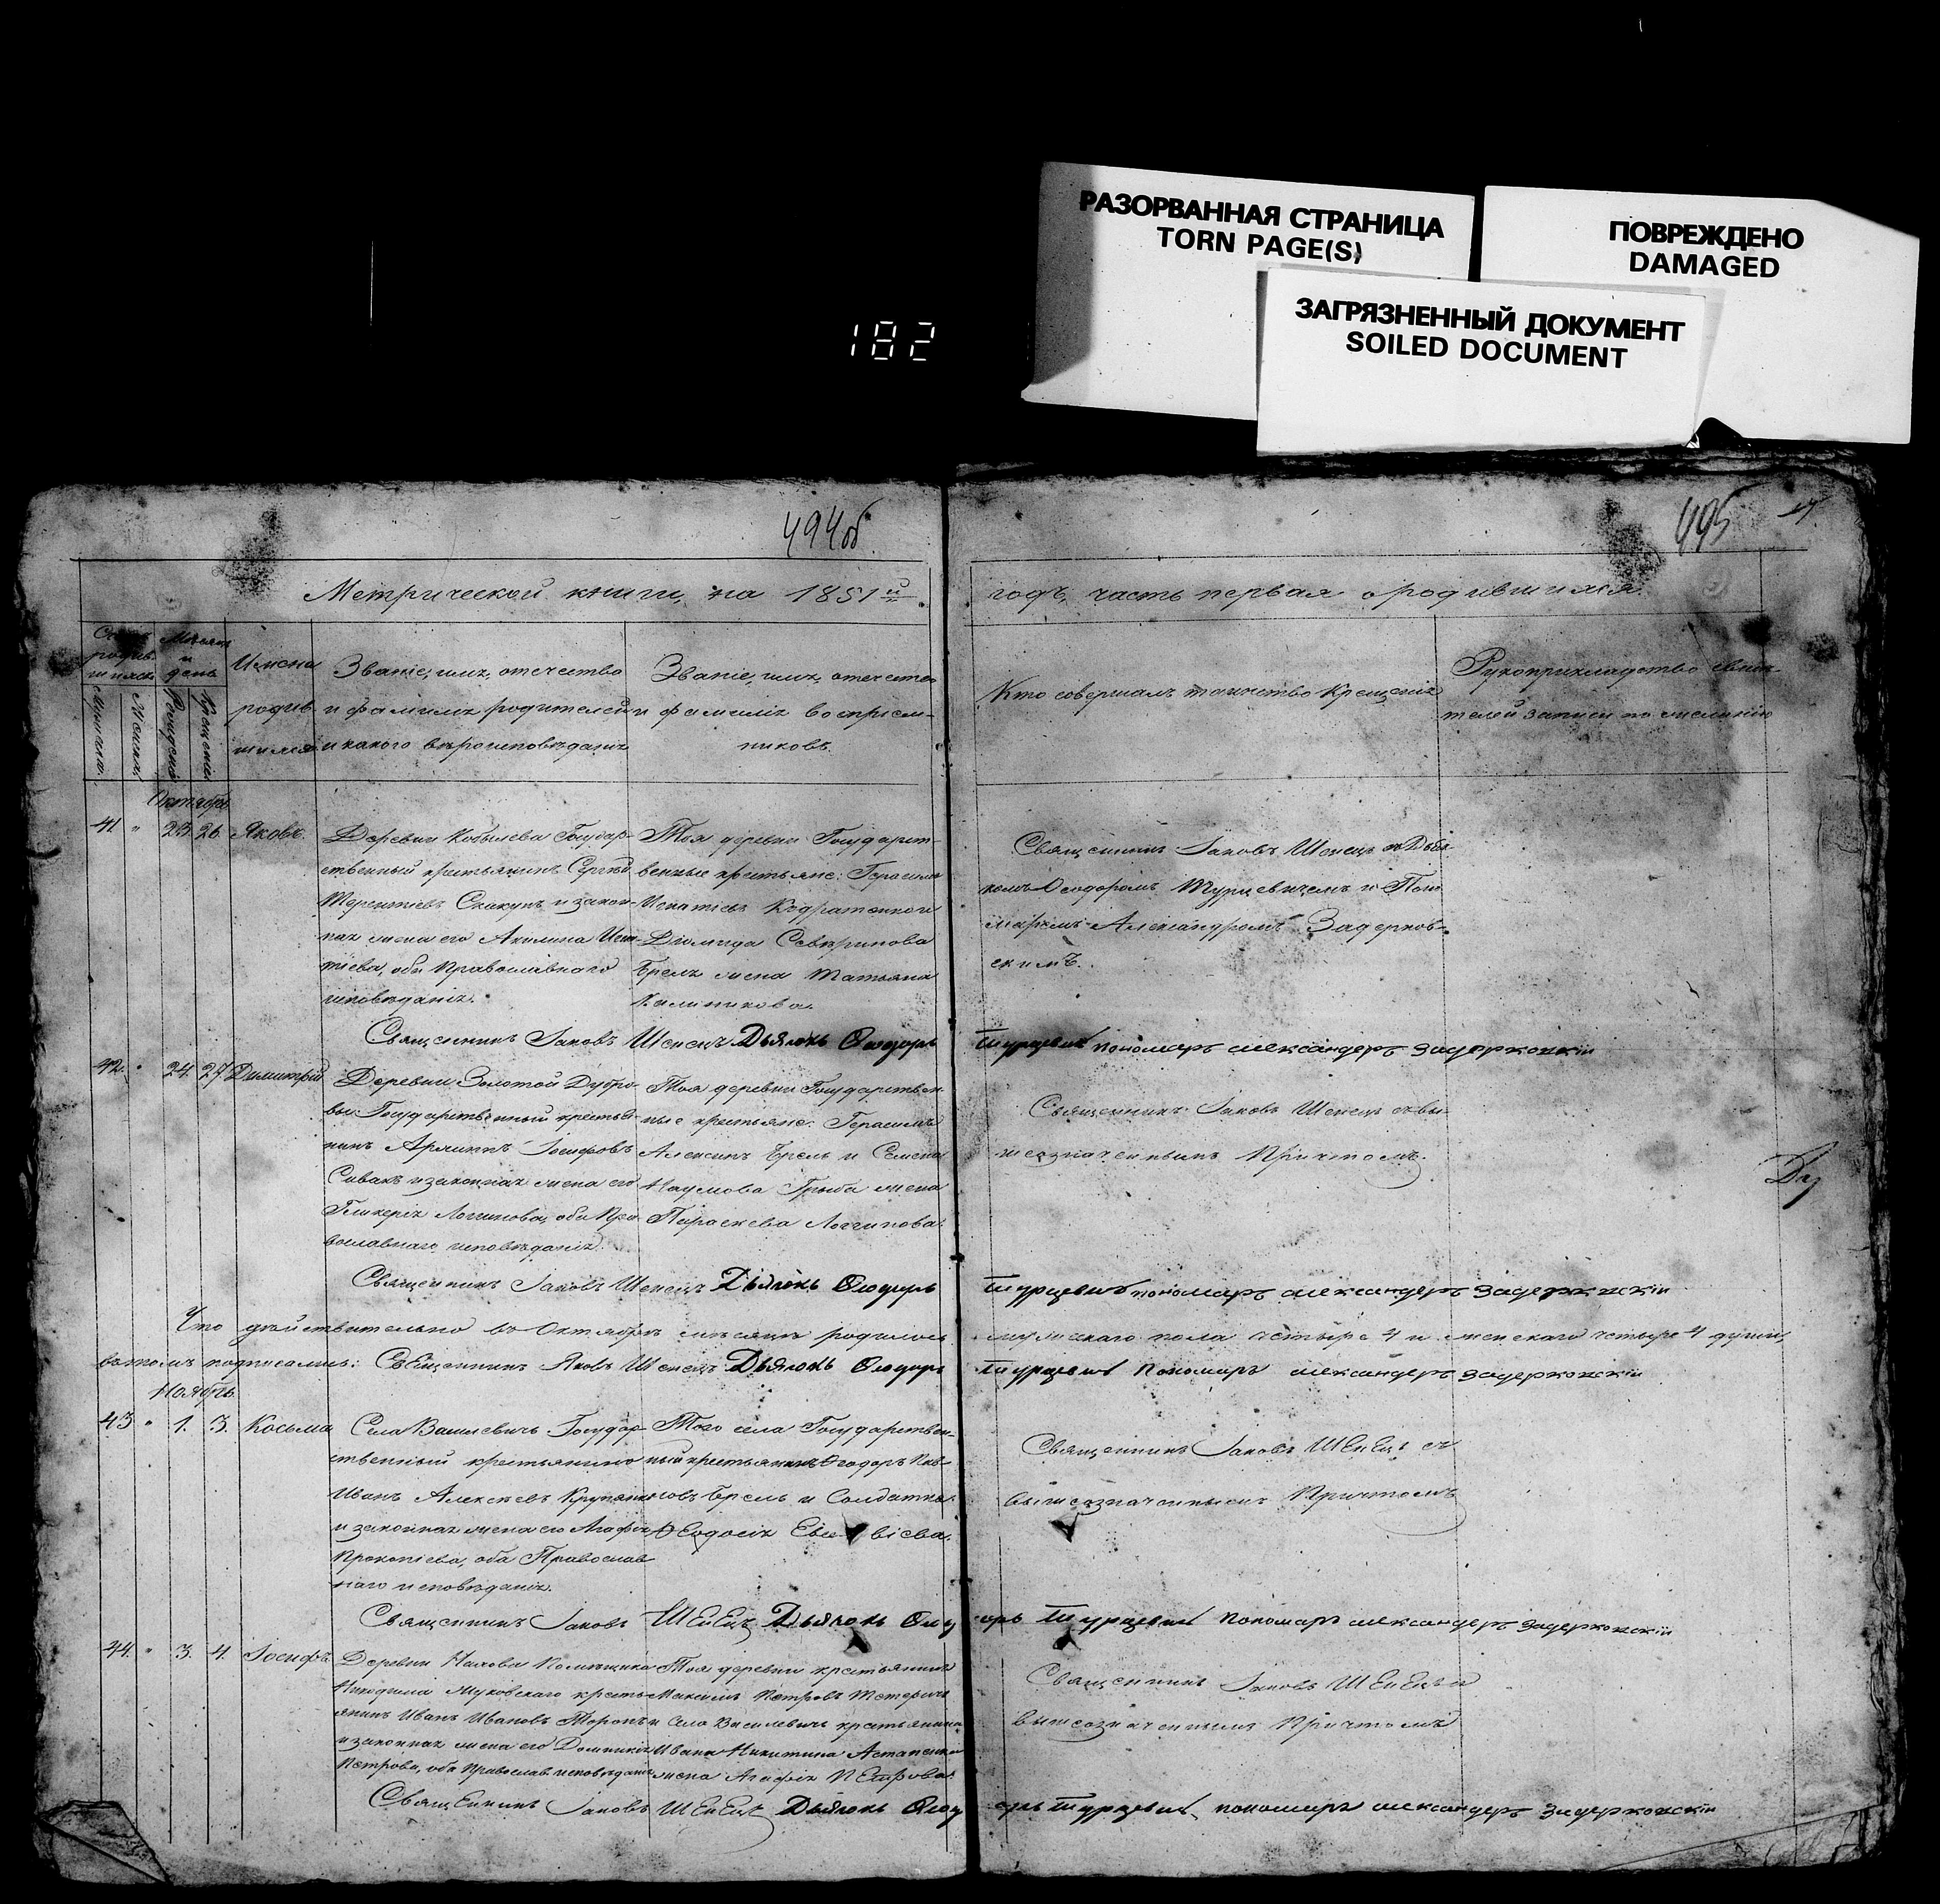 РАЗОРВАННАЯ СТРАНИЦА
TORN PAGE(S)
ПОВРЕЖДЕНО
DAMAGED
ЗАГРЯЗНЕННЫЙ ДОКУМЕНТ
SOILED DOCUMENT
182
494об.
495
Метрической книги, на 1851й
годъ, часть первая о родившихся
Мѣсяцъ
и
день
Имена
родив
шихся
Званіе, имя, отечество
и фамилія родителей
и какого вѣроисповѣданія
Званіе, имя, отечество
и фамилія воспріем-
никовъ.
Кто совершалъ таинство Крещенія
Рукоприкладство свидѣ-
телей записи по желанію
Октябрь
41 " 23 26 Яковъ
Деревни Кобылева Государ-
ственный крестьянинъ Сергѣй
Терентіевъ Скакунъ и закон-
ная жена его Акилина Игна-
тіева, оба Православнаго
исповѣданія.
Тоя деревни Государст-
венные крестьяне: Герасимъ
Игнатіевъ Кодратенко и
Діомида Севѣринова
Брель жена Татьяна
Калиникова.
Священникъ Іаковъ Шенецъ съ Дья-
кономъ Ѳеодоромъ Турцевичемъ и Поно-
маремъ Александромъ Задерков-
скимъ.
Священникъ Іаковъ Шенецъ Дьяконъ Ѳеодоръ
Турцевичъ пономаръ александеръ задерковскій
42 " 24 27 Димитрій
Деревни Золотой Дубро-
вы Государственный крестья-
нинъ Іосифовъ
Сивакъ и законная жена его
Гликерія Логинова, оба Пра-
вославнаго исповѣданія.
Тоя деревни Государствен-
ные крестьяне: Герасимъ
Алексинъ Брель и Семена
Наумова Грыба жена
Параскева Логинова.
Священникъ Іаковъ Шенецъ съ вы-
шеозначеннымъ Причтомъ.
Священникъ Іаковъ Шенецъ Дьяконъ Ѳеодоръ
Турцевичъ пономаръ александеръ задерковскій
Что дѣйствительно въ Октябрѣ мѣсяцѣ родилось
мужескаго пола четыре 4 и женскаго четыре 4 души,
въ томъ подписались: Священникъ Яковъ Шенецъ Дьяконъ Ѳеодоръ
Турцевичъ пономаръ александеръ задерковскій
Ноябрь
43 " 1. 3. Косьма
Села Василевичъ Государ-
ственный крестьянинъ
Иванъ Алексѣевъ
и законная жена его Агафія
Прокопіева, оба Православ
наго исповѣданія.
Того села Государствен-
ный крестьянинъ Ѳеодоръ
Брель и Солдатка
Ѳеодосія
Священникъ Іаковъ Шенецъ съ
вышеозначеннымъ Причтомъ
Священникъ Іаковъ Шенецъ Дьяконъ Ѳеод
оръ Турцевичъ пономаръ александеръ задерковскій
44. " 3. 4. Іосифъ
Деревни Помѣщика
Никодима крестья
янинъ Иванъ Ивановъ
и законная жена его Домникія
Петрова, оба Православ. исповѣданія
Тоя деревни крестьянинъ
Максимъ Петровъ
и Села Василевичъ крестьянина
Ивана Никитина Астапенка
жена Агафія Петрова.
Священникъ Іаковъ Шенецъ съ
вышеозначеннымъ Причтомъ
Священникъ Іаковъ Шенецъ Дьяконъ Ѳеод
оръ Турцевичъ, пономаръ александеръ задерковскій